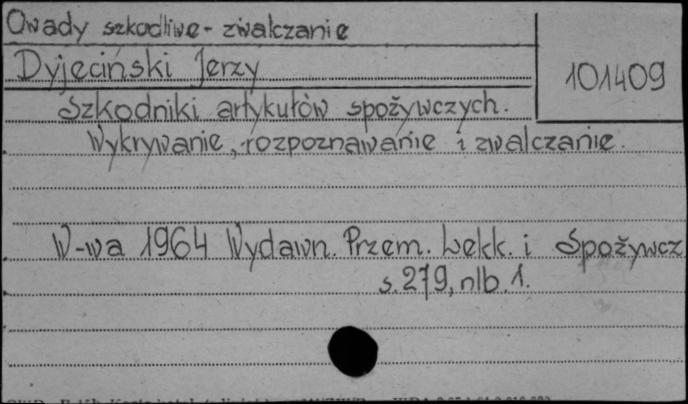 Owady szkodliwe - zwalczanie
Dyjeciński Jerzy
101409
Szkodniki artykułów spożywczych.
Wykrywanie, rozpoznawanie i zwalczanie.
W-wa 1964 Wydawn. Przem. Lekk. i Spożywcz
s. 279, nlb. 1.